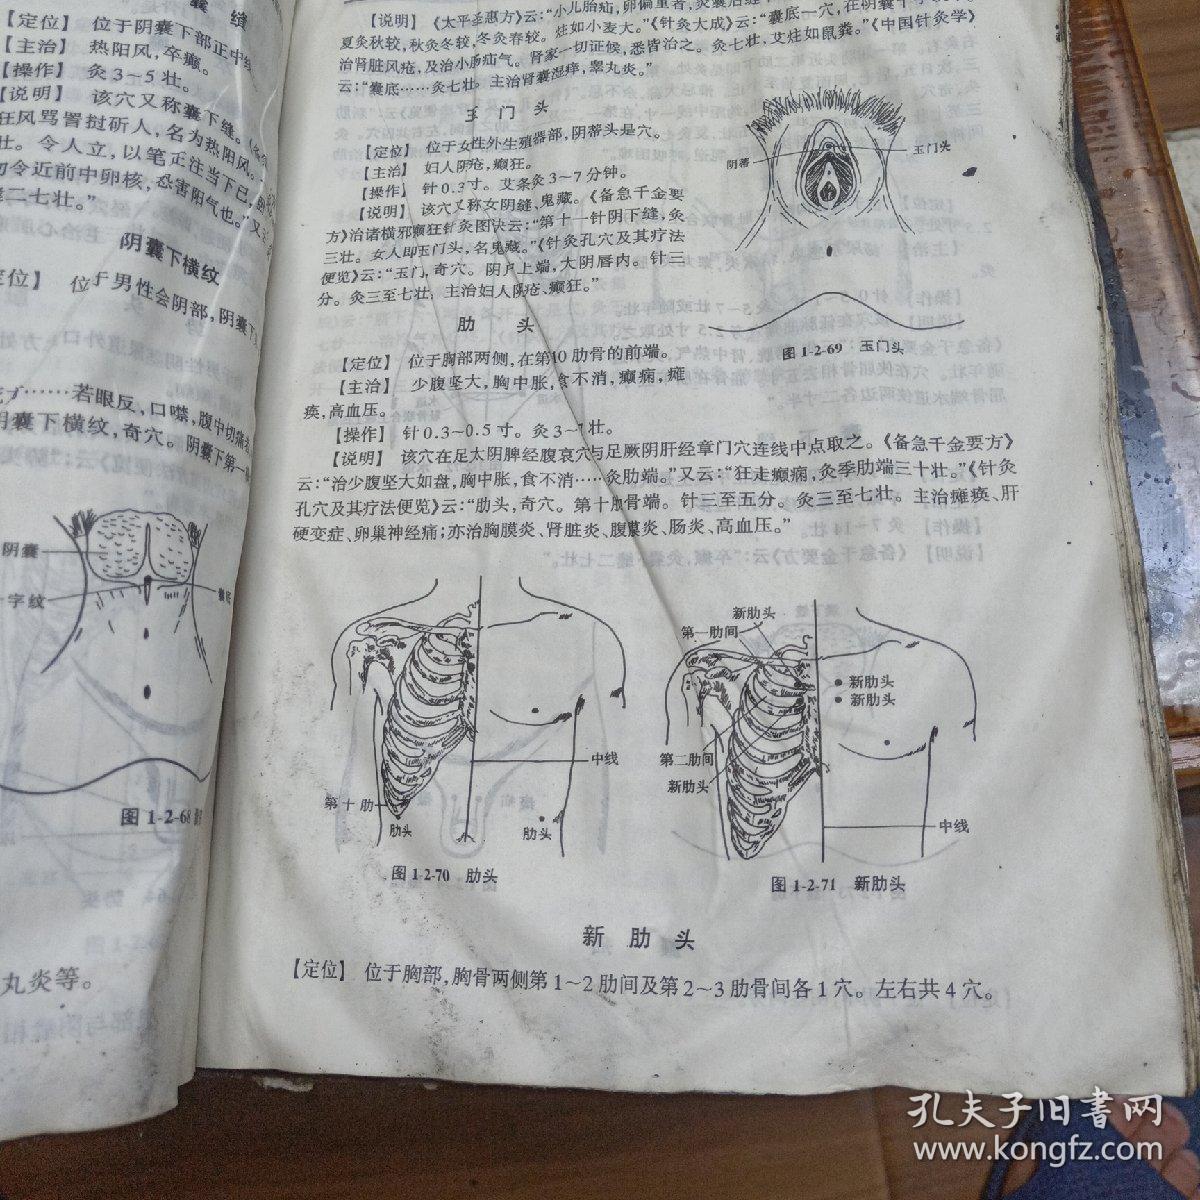 囊 缝
【定位】 位于阴囊下部正中线
【主治】 热阳风，卒癫。
【操作】 灸3～5壮。
【说明】 该穴又称囊下缝。
狂风骂詈挝斫人，名为热阳风。
壮。令人立，以笔正注当下已，
勿令近前中卵核，恐害阳气也。”又
二七壮。”
阴囊下横纹
定位】 位于男性会阴部，阴囊下
……若眼反，口噤，腹中切痛
阴囊下横纹，奇穴。阴囊下第一
阴囊
字纹
囊底
图 1-2-68
丸炎等。
【说明】《太平圣惠方》云：“小儿胎疝，卵偏重者，灸囊后缝
夏灸秋较，秋灸冬较，冬灸春较。炷如小麦大。”《针灸大成》云：“囊底一穴，在阴囊十字
治肾脏风疮，及治小肠疝气。肾家一切证候，悉皆治之。灸七壮，艾炷如鼠粪。”《中国针灸学》
云：“囊底……灸七壮。主治肾囊湿痒，睾丸炎。”
玉 门 头
【定位】 位于女性外生殖器部，阴蒂头是穴。
【主治】 妇人阴疮，癫狂。
【操作】 针0.3寸。艾条灸3～7分钟。
【说明】 该穴又称女阴缝、鬼藏。《备急千金要
方》治诸横邪癫狂针灸图诀云：“第十一针阴下缝，灸
三壮。女人即玉门头，名鬼藏。”《针灸孔穴及其疗法
便览》云：“玉门，奇穴。阴户上端，大阴唇内。针三
分。灸三至七壮；主治妇人阴疮、癫狂。”
阴蒂
玉门头
图 1-2-69 玉门头
肋 头
【定位】 位于胸部两侧，在第10肋骨的前端。
【主治】 少腹坚大，胸中胀，食不消，癫痫，瘫
痪，高血压。
【操作】 针0.3～0.5寸。灸3～7壮。
【说明】 该穴在足太阴脾经腹哀穴与足厥阴肝经章门穴连线中点取之。《备急千金要方》
云：“治少腹坚大如盘，胸中胀，食不消……灸肋端。”又云：“狂走癫痫，灸季肋端三十壮。”《针灸
孔穴及其疗法便览》云：“肋头，奇穴。第十肋骨端。针三至五分。灸三至七壮。主治瘫痪、肝
硬变症、卵巢神经痛；亦治胸膜炎、肾脏炎、腹膜炎、肠炎、高血压。”
第十肋
肋头
肋头
中线
图 1-2-70 肋头
新肋头
第一肋间
新肋头
新肋头
第二肋间
新肋头
中线
图 1-2-71 新肋头
新 肋 头
【定位】 位于胸部，胸骨两侧第1～2肋间及第2～3肋骨间各1穴。左右共4穴。
孔夫子旧书网
www.kongfz.com